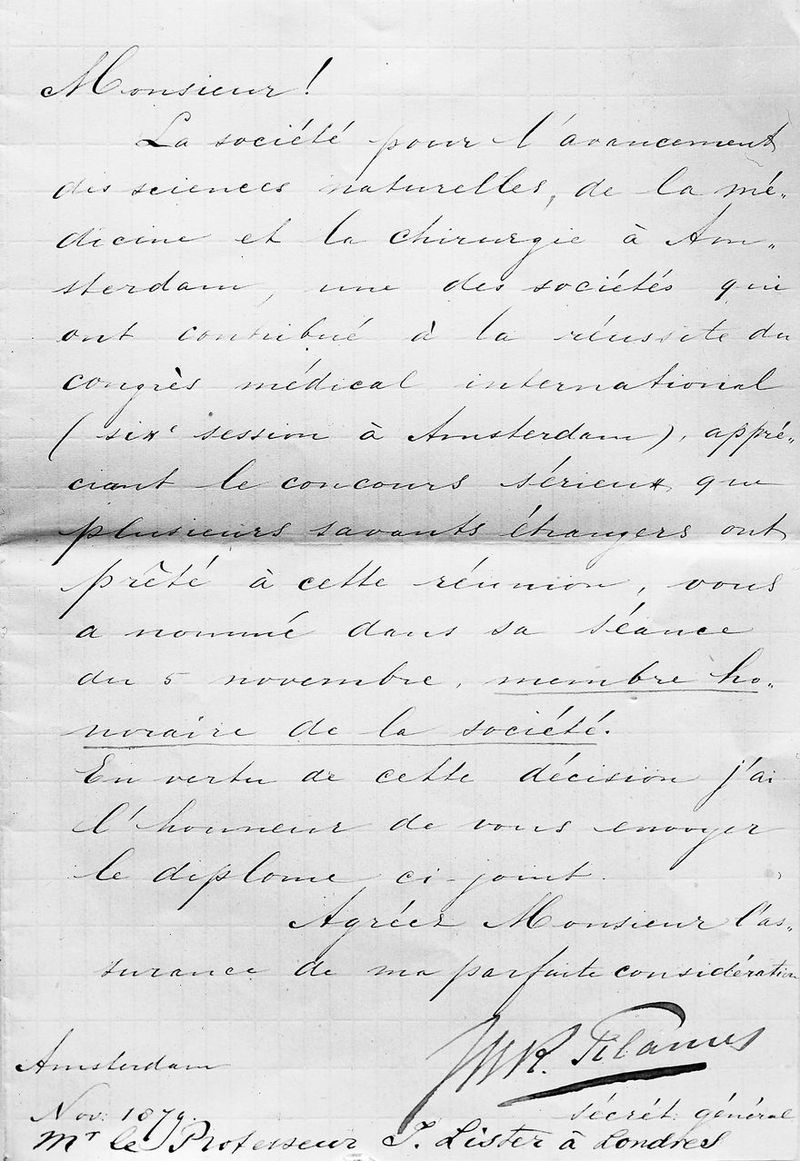 Monsieur!
La société pour l'avancement
des sciences naturelles, de la mé-
dicine et la chirurgie à Am-
sterdam, une des sociétés qui
ont contribué à la réussite du
congrès médical international
(sixe session à Amsterdam), appré-
ciant le concours sérieux que
plusieurs savants étrangers ont
prêté à cette réunion, vous
a nommé dans sa séance
du 5 novembre, membre ho-
noraire de la société.
En vertu de cette décision j'ai
l'honneur de vous envoyer
le diplome ci-joint.
Agréez Monsieur l'as-
surance de ma parfaite considération
Tilanus
Amsterdam
secrét. général
Nov. 1879.
Mr le Professeur J. Lister à Londres